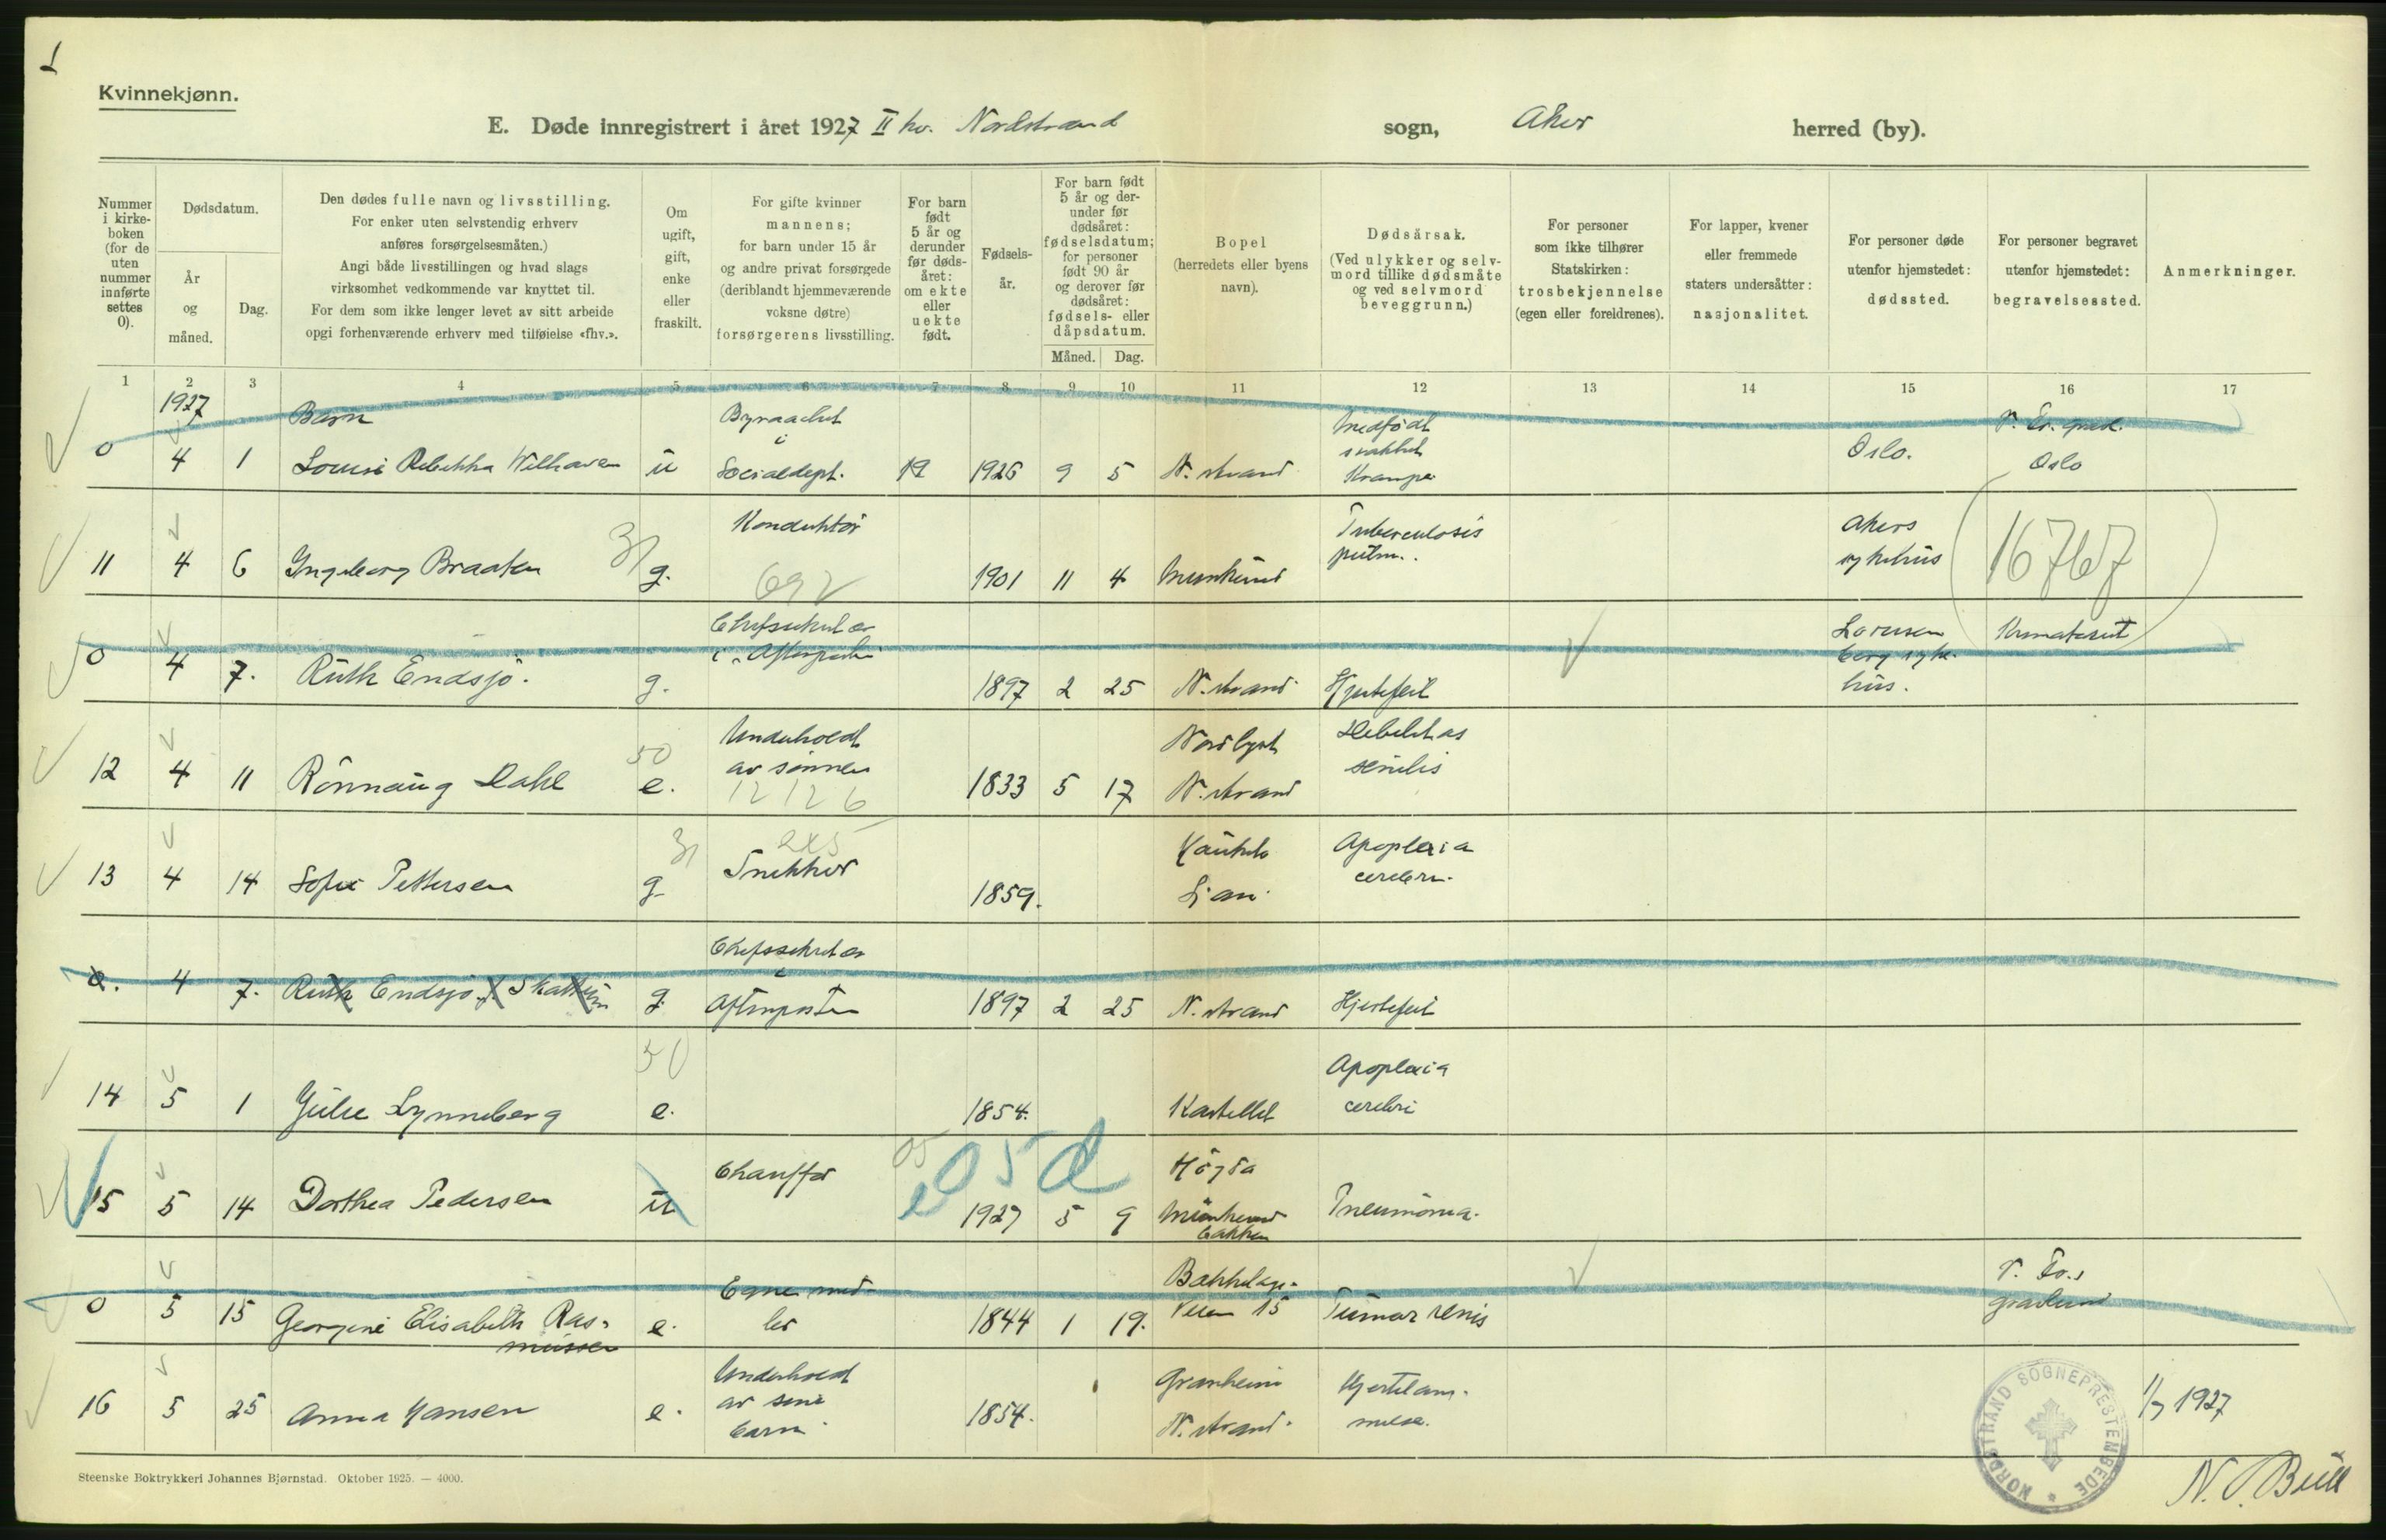 1
Kvinnekjønn.
E. Døde innregistrert i året 1927 II kv. Nordstrand sogn, Aker herred (by).
Nummer i kirke- boken (for de uten nummer innførte settes 0).
Dødsdatum.
År og måned.
Dag.
Den dødes fulle navn og livsstilling.
For enker uten selvstendig erhverv
anføres forsørgelsesmåten.)
Angi både livsstillingen og hvad slags
virksomhet vedkommende var knyttet til.
For dem som ikke lenger levet av sitt arbeide
opgi forhenværende erhverv med tilføielse «fhv.».
Om ugift, gift, enke eller fraskilt.
For gifte kvinner
mannens;
for barn under 15 år
og andre privat forsørgede
(deriblandt hjemmeværende
voksne døtre)
forsørgerens livsstilling.
For barn født 5 år og derunder før døds- året: om ekte eller uekte født.
Fødsels- år.
For barn født 5 år og der- under før dødsåret: fødselsdatum; for personer født 90 år og derover før dødsåret: fødsels- eller dåpsdatum.
Måned. Dag.
Bopel
(herredets eller byens
navn).
Dødsårsak.
(Ved ulykker og selv-
mord tillike dødsmåte
og ved selvmord
beveggrunn.)
For personer
som ikke tilhører
Statskirken:
trosbekjennelse
(egen eller foreldrenes).
For lapper, kvener
eller fremmede
staters undersåtter:
nasjonalitet.
For personer døde
utenfor hjemstedet:
dødssted.
For personer begravet
utenfor hjemstedet:
begravelsessted.
Anmerkninger.
1 2 3 4 5 6 7 8 9 10 11 12 13 14 15 16 17
1927
Barn
i
Medfødt
V. Fr. grav.
0 4 1 Louise Rebekka Welhaven u Socialdept. 1926 9 5 N. strand Krampe Oslo. Oslo
Konduktør
Tuberculosis
Akers
11 4 6 Ingeborg Braaten 31 g. 692 1901 11 4 Munkerud pulm. sykehus 16767
Chefsekretær
Lovisen
Krematoriet
i Aftenposten
berg syke-
0 4 7. Ruth Endsjø. g. 1897 2 25 N. strand Hjertefeil hus.
Underholdt
Debilitas
50 av sønnen
senilis
12 4 11 Rønnaug Dahl e. 12126 1833 5 17 N. strand
31 2x5
Apoplexia
cerebri.
13 4 14 Sofie Pettersen g. Snekker 1859. Lian.
Chefssekretær
i
0. 4 7. Ruth Endsjø f. Skattum g. Aftenposten 1897 2 25 N. strand Hjertefeil
50
Apoplexia
14 5 1 Julie Lynneberg e. 1854. Kastellet cerebri
Chauffør 05 05 d
15 5 14 Dorthea Pedersen u e 1927 5 9 Munkerud Pneumonia.
bakken
Egne mid-
Bækkelags-
V. Fr.s
0 5 15 Georgine Elisabeth Ras- e. ler 1844 1 19. veien 15 Tumor renis gravlund
mussen
Underholdt
Granheim
Hjertelam-
16 5 25 Anna Hansen e. av sine 1854. N. strand. melse.
barn
NORDSTRAND SOGNEPRESTEMBEDE
1/7 1927
N. J. Bull
Steenske Boktrykkeri Johannes Bjørnstad. Oktober 1925. — 4000.